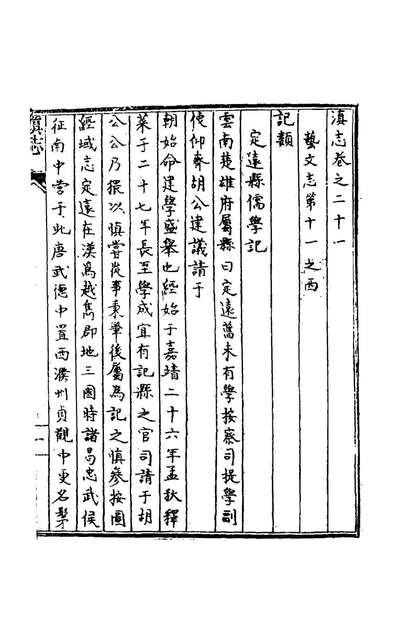 滇志卷之二十一
藝文志第十一之四
記類
定遠縣儒學記
雲南楚雄府屬縣曰定遠舊未有學按察司提學副
使仰齋胡公建議請于
朝始命建學盛舉也經始于嘉靖二十六年孟秋釋
菜于二十七年長至學成宜有記縣之官司請于胡
公公乃猥以慎嘗從事秉筆後屬為記之慎參按圖
經域志定遠在漢爲越嶲郡地三國時諸葛忠武侯
征南中營于此唐武德中置西濮州貞觀中更名髳
滇志